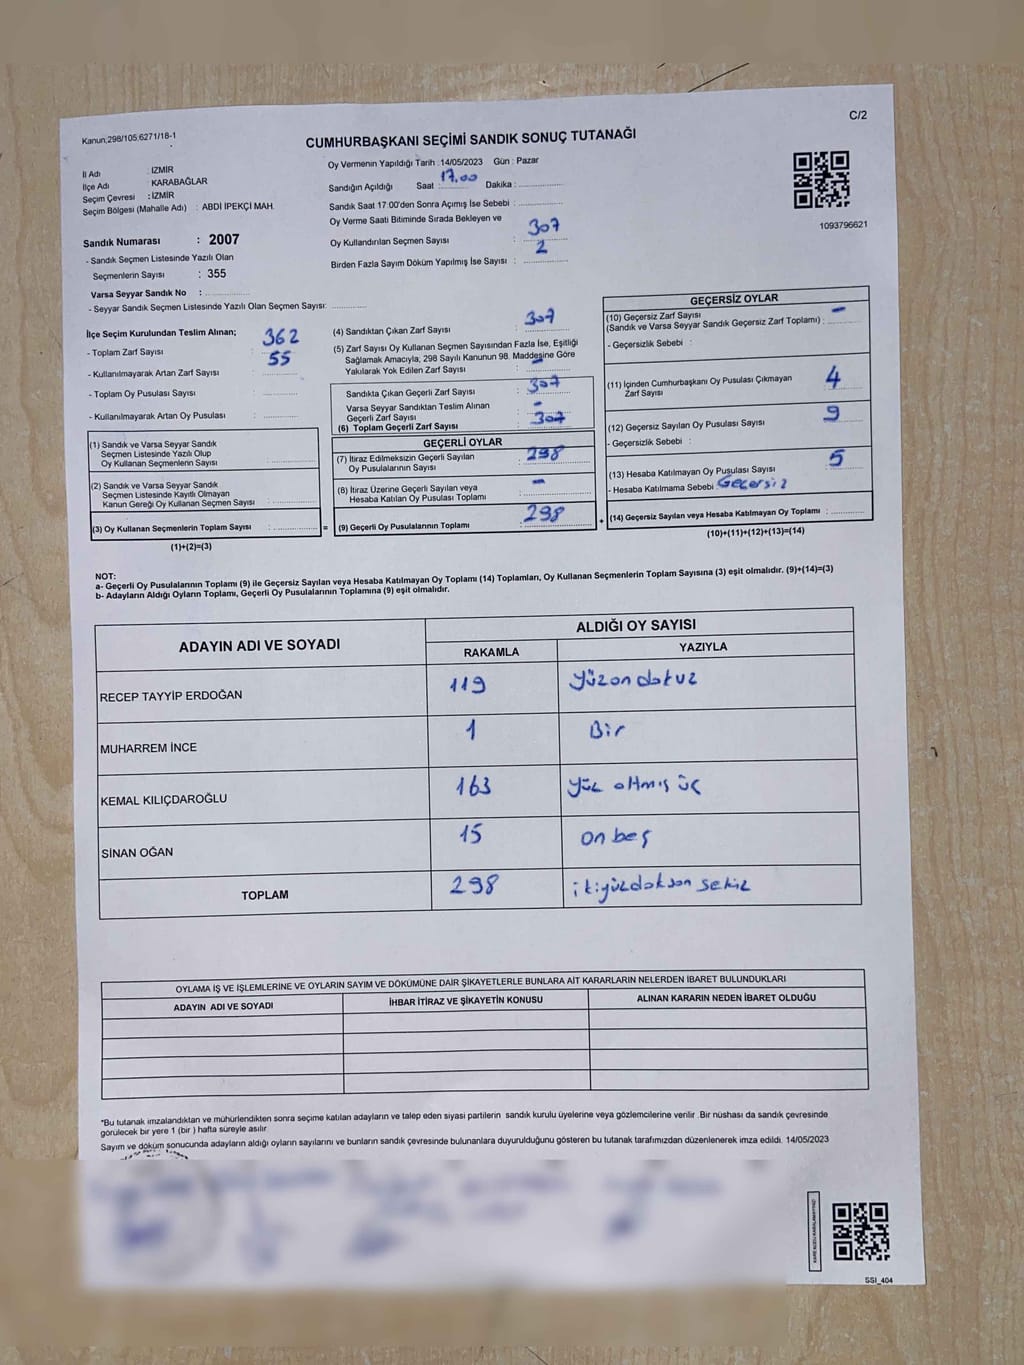 C/2
Kanun;298/105;6271/18-1
CUMHURBAŞKANI SEÇİMİ SANDIK SONUÇ TUTANAĞI
İl Adı : İZMİR
İlçe Adı : KARABAĞLAR
Seçim Çevresi : İZMİR
Seçim Bölgesi (Mahalle Adı) : ABDİ İPEKÇİ MAH.
Sandık Numarası : 2007
- Sandık Seçmen Listesinde Yazılı Olan
Seçmenlerin Sayısı : 355
Varsa Seyyar Sandık No :
- Seyyar Sandık Seçmen Listesinde Yazılı Olan Seçmen Sayısı:
Oy Vermenin Yapıldığı Tarih :14/05/2023 Gün : Pazar
Sandığın Açıldığı Saat : 17.00 Dakika :
Sandık Saat 17:00'den Sonra Açımış İse Sebebi :
Oy Verme Saati Bitiminde Sırada Bekleyen ve
Oy Kullandırılan Seçmen Sayısı : 307
Birden Fazla Sayım Döküm Yapılmış İse Sayısı : 2
1093796621
İlçe Seçim Kurulundan Teslim Alınan;
- Toplam Zarf Sayısı : 362
- Kullanılmayarak Artan Zarf Sayısı : 55
- Toplam Oy Pusulası Sayısı :
- Kullanılmayarak Artan Oy Pusulası :
(1) Sandık ve Varsa Seyyar Sandık
Seçmen Listesinde Yazılı Olup
Oy Kullanan Seçmenlerin Sayısı :
(2) Sandık ve Varsa Seyyar Sandık
Seçmen Listesinde Kayıtlı Olmayan
Kanun Gereği Oy Kullanan Seçmen Sayısı :
(3) Oy Kullanan Seçmenlerin Toplam Sayısı : =
(1)+(2)=(3)
(4) Sandıktan Çıkan Zarf Sayısı : 307
(5) Zarf Sayısı Oy Kullanan Seçmen Sayısından Fazla İse, Eşitliği
Sağlamak Amacıyla; 298 Sayılı Kanunun 98. Maddesine Göre
Yakılarak Yok Edilen Zarf Sayısı : -
Sandıkta Çıkan Geçerli Zarf Sayısı : 307
Varsa Seyyar Sandıktan Teslim Alınan
Geçerli Zarf Sayısı : -
(6) Toplam Geçerli Zarf Sayısı : 307
GEÇERLİ OYLAR
(7) İtiraz Edilmeksizin Geçerli Sayılan
Oy Pusulalarının Sayısı : 298
(8) İtiraz Üzerine Geçerli Sayılan veya
Hesaba Katılan Oy Pusulası Toplamı : -
(9) Geçerli Oy Pusulalarının Toplamı : 298 +
GEÇERSİZ OYLAR
(10) Geçersiz Zarf Sayısı
(Sandık ve Varsa Seyyar Sandık Geçersiz Zarf Toplamı) : -
- Geçersizlik Sebebi :
(11) İçinden Cumhurbaşkanı Oy Pusulası Çıkmayan
Zarf Sayısı : 4
(12) Geçersiz Sayılan Oy Pusulası Sayısı : 9
- Geçersizlik Sebebi :
(13) Hesaba Katılmayan Oy Pusulası Sayısı : 5
- Hesaba Katılmama Sebebi : Geçersiz
(14) Geçersiz Sayılan veya Hesaba Katılmayan Oy Toplamı :
(10)+(11)+(12)+(13)=(14)
NOT:
a- Geçerli Oy Pusulalarının Toplamı (9) ile Geçersiz Sayılan veya Hesaba Katılmayan Oy Toplamı (14) Toplamları, Oy Kullanan Seçmenlerin Toplam Sayısına (3) eşit olmalıdır. (9)+(14)=(3)
b- Adayların Aldığı Oyların Toplamı, Geçerli Oy Pusulalarının Toplamına (9) eşit olmalıdır.
ADAYIN ADI VE SOYADI
ALDIĞI OY SAYISI
RAKAMLA YAZIYLA
RECEP TAYYİP ERDOĞAN 119 Yüzondokuz
MUHARREM İNCE 1 Bir
KEMAL KILIÇDAROĞLU 163 Yüz altmış üç
SİNAN OĞAN 15 on beş
TOPLAM 298 ikiyüzdoksan sekiz
OYLAMA İŞ VE İŞLEMLERİNE VE OYLARIN SAYIM VE DÖKÜMÜNE DAİR ŞİKAYETLERLE BUNLARA AİT KARARLARIN NELERDEN İBARET BULUNDUKLARI
ADAYIN ADI VE SOYADI İHBAR İTİRAZ VE ŞİKAYETİN KONUSU ALINAN KARARIN NEDEN İBARET OLDUĞU
*Bu tutanak imzalandıktan ve mühürlendikten sonra seçime katılan adayların ve talep eden siyasi partilerin sandık kurulu üyelerine veya gözlemcilerine verilir .Bir nüshası da sandık çevresinde
görülecek bir yere 1 (bir ) hafta süreyle asılır.
Sayım ve döküm sonucunda adayların aldığı oyların sayılarını ve bunların sandık çevresinde bulunanlara duyurulduğunu gösteren bu tutanak tarafımızdan düzenlenerek imza edildi. 14/05/2023
SSI_404